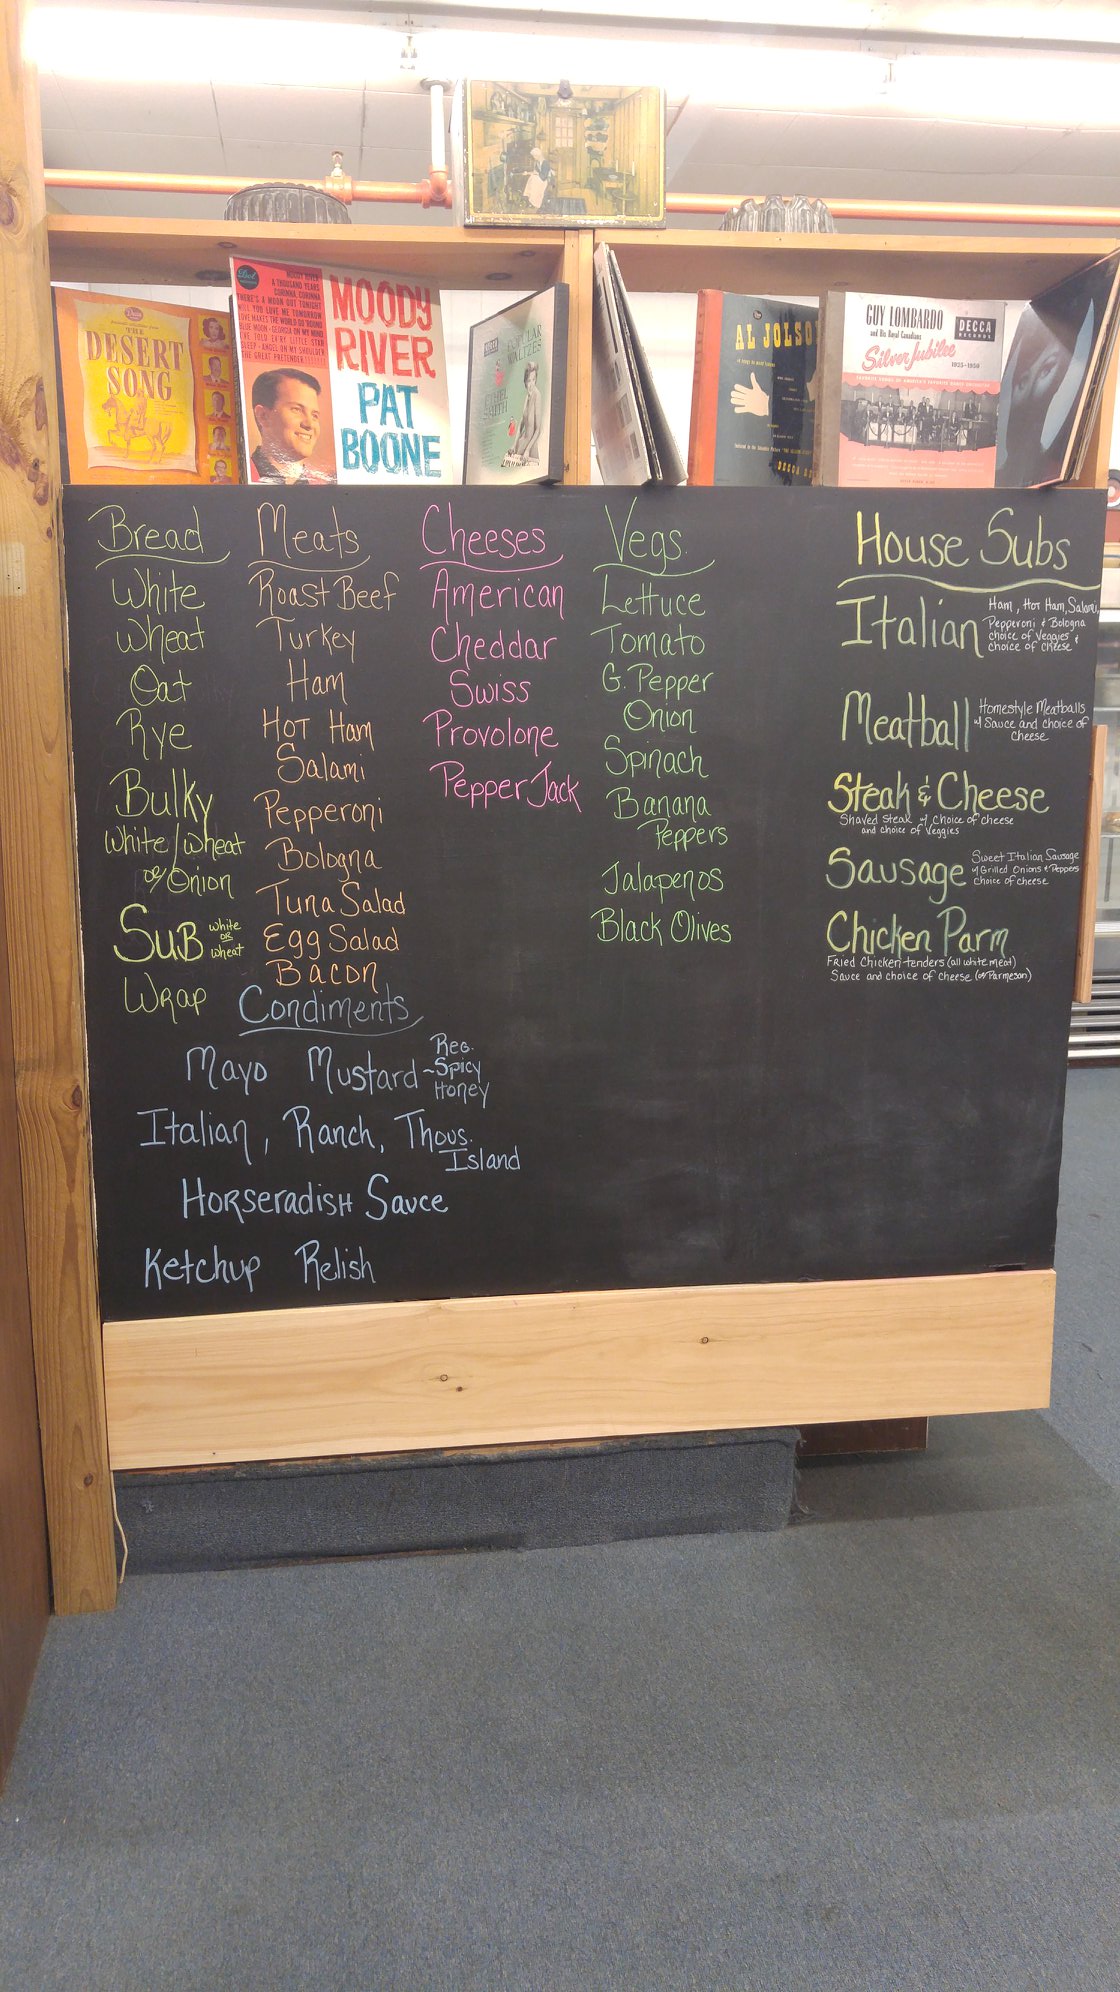 THE
DESERT
SONG
Dot
MOODY RIVER
A THOUSAND YEARS
CORINNA, CORINNA
THERE'S A MOON OUT TONIGHT
WILL YOU LOVE ME TOMORROW
LOVE MAKES THE WORLD GO 'ROUND
BLUE MOON · GEORGIA ON MY MIND
I'VE TOLD EV'RY LITTLE STAR
SLEEP · ANGEL ON MY SHOULDER
THE GREAT PRETENDER
MOODY
RIVER
PAT
BOONE
DECCA
POPULAR
WALTZES
ETHEL
SMITH
AL JOLSO
DECCA RE
GUY LOMBARDO
and His Royal Canadians
DECCA
RECORDS
Silver Jubilee
1925-1950
Bread
White
Wheat
Oat
Rye
Bulky
White/Wheat
or Onion
Sub White
or
Wheat
Wrap
Meats
Roast Beef
Turkey
Ham
Hot Ham
Salami
Pepperoni
Bologna
Tuna Salad
Egg Salad
Bacon
Cheeses
American
Cheddar
Swiss
Provolone
Pepper Jack
Vegs.
Lettuce
Tomato
G. Pepper
Onion
Spinach
Banana
Peppers
Jalapenos
Black Olives
Condiments
Mayo Mustard ~ Reg.
Spicy
Honey
Italian, Ranch, Thous.
Island
Horseradish Sauce
Ketchup Relish
House Subs
Italian
Ham, Hot Ham, Salami,
Pepperoni & Bologna
choice of Veggies &
choice of cheese
Meatball
Homestyle Meatballs
w/ Sauce and choice of
cheese
Steak & Cheese
Shaved Steak w/ choice of cheese
and choice of Veggies
Sausage
Sweet Italian Sausage
w/ Grilled Onions & Peppers
choice of cheese
Chicken Parm
Fried Chicken tenders (all white meat)
Sauce and choice of cheese (or Parmesan)